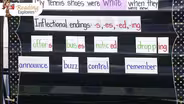 Reading
my tennis shoes were white when they
were new.
Inflectional endings -s, -es, -ed, -ing
offers buzzes noticed dropping
announce buzz control remember